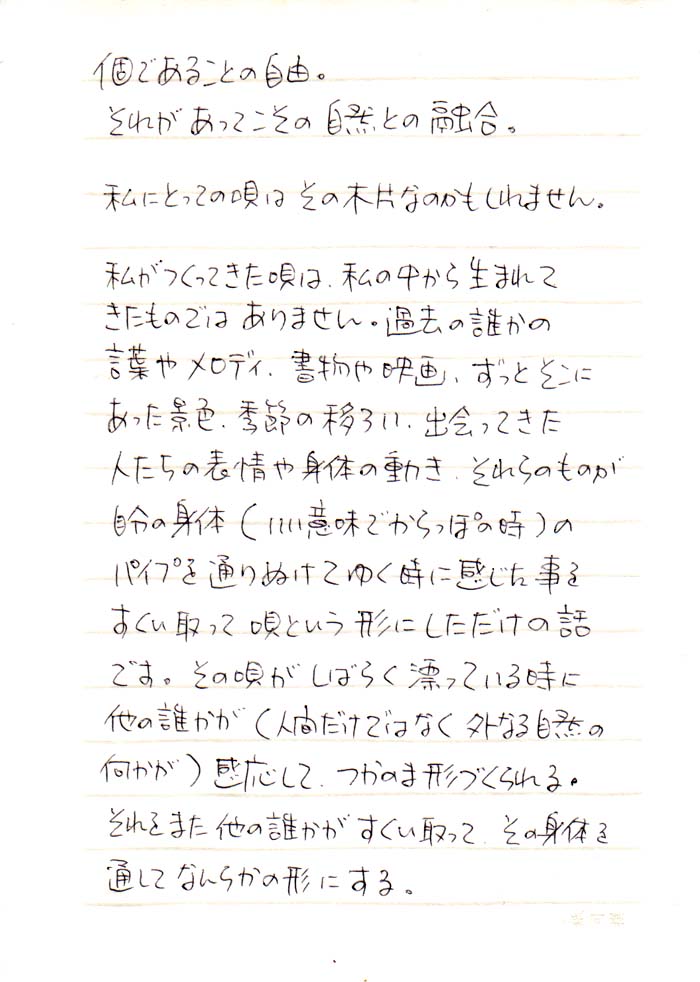 個であることの自由。
それがあってこその自然との融合。
私にとっての唄はその木片なのかもしれません。
私がつくってきた唄は、私の中から生まれて
きたものではありません。過去の誰かの
言葉やメロディ、書物や映画、ずっとそこに
あった景色、季節の移ろい、出会ってきた
人たちの表情や身体の動き、それらのものが
自分の身体(いい意味でからっぽの時)の
パイプを通りぬけてゆく時に感じた事を
すくい取って唄という形にしただけの話
です。その唄がしばらく漂っている時に
他の誰かが(人間だけではなく外なる自然の
何かが)感応して、つかのま形づくられる。
それをまた他の誰かがすくい取って、その身体を
通してなんらかの形にする。